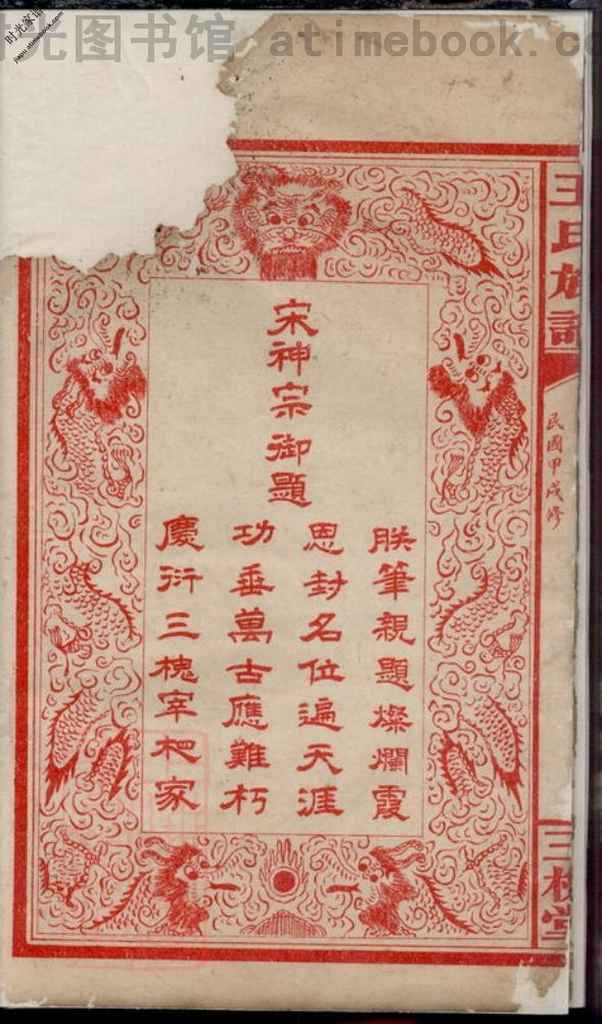 时光图书馆 atimebook.c
时光家谱
王氏族譜
民國甲戌修
三槐堂
宋神宗御題
朕筆親題燦爛霞
恩封名位遍天涯
功垂萬古應難朽
慶衍三槐宰杷家